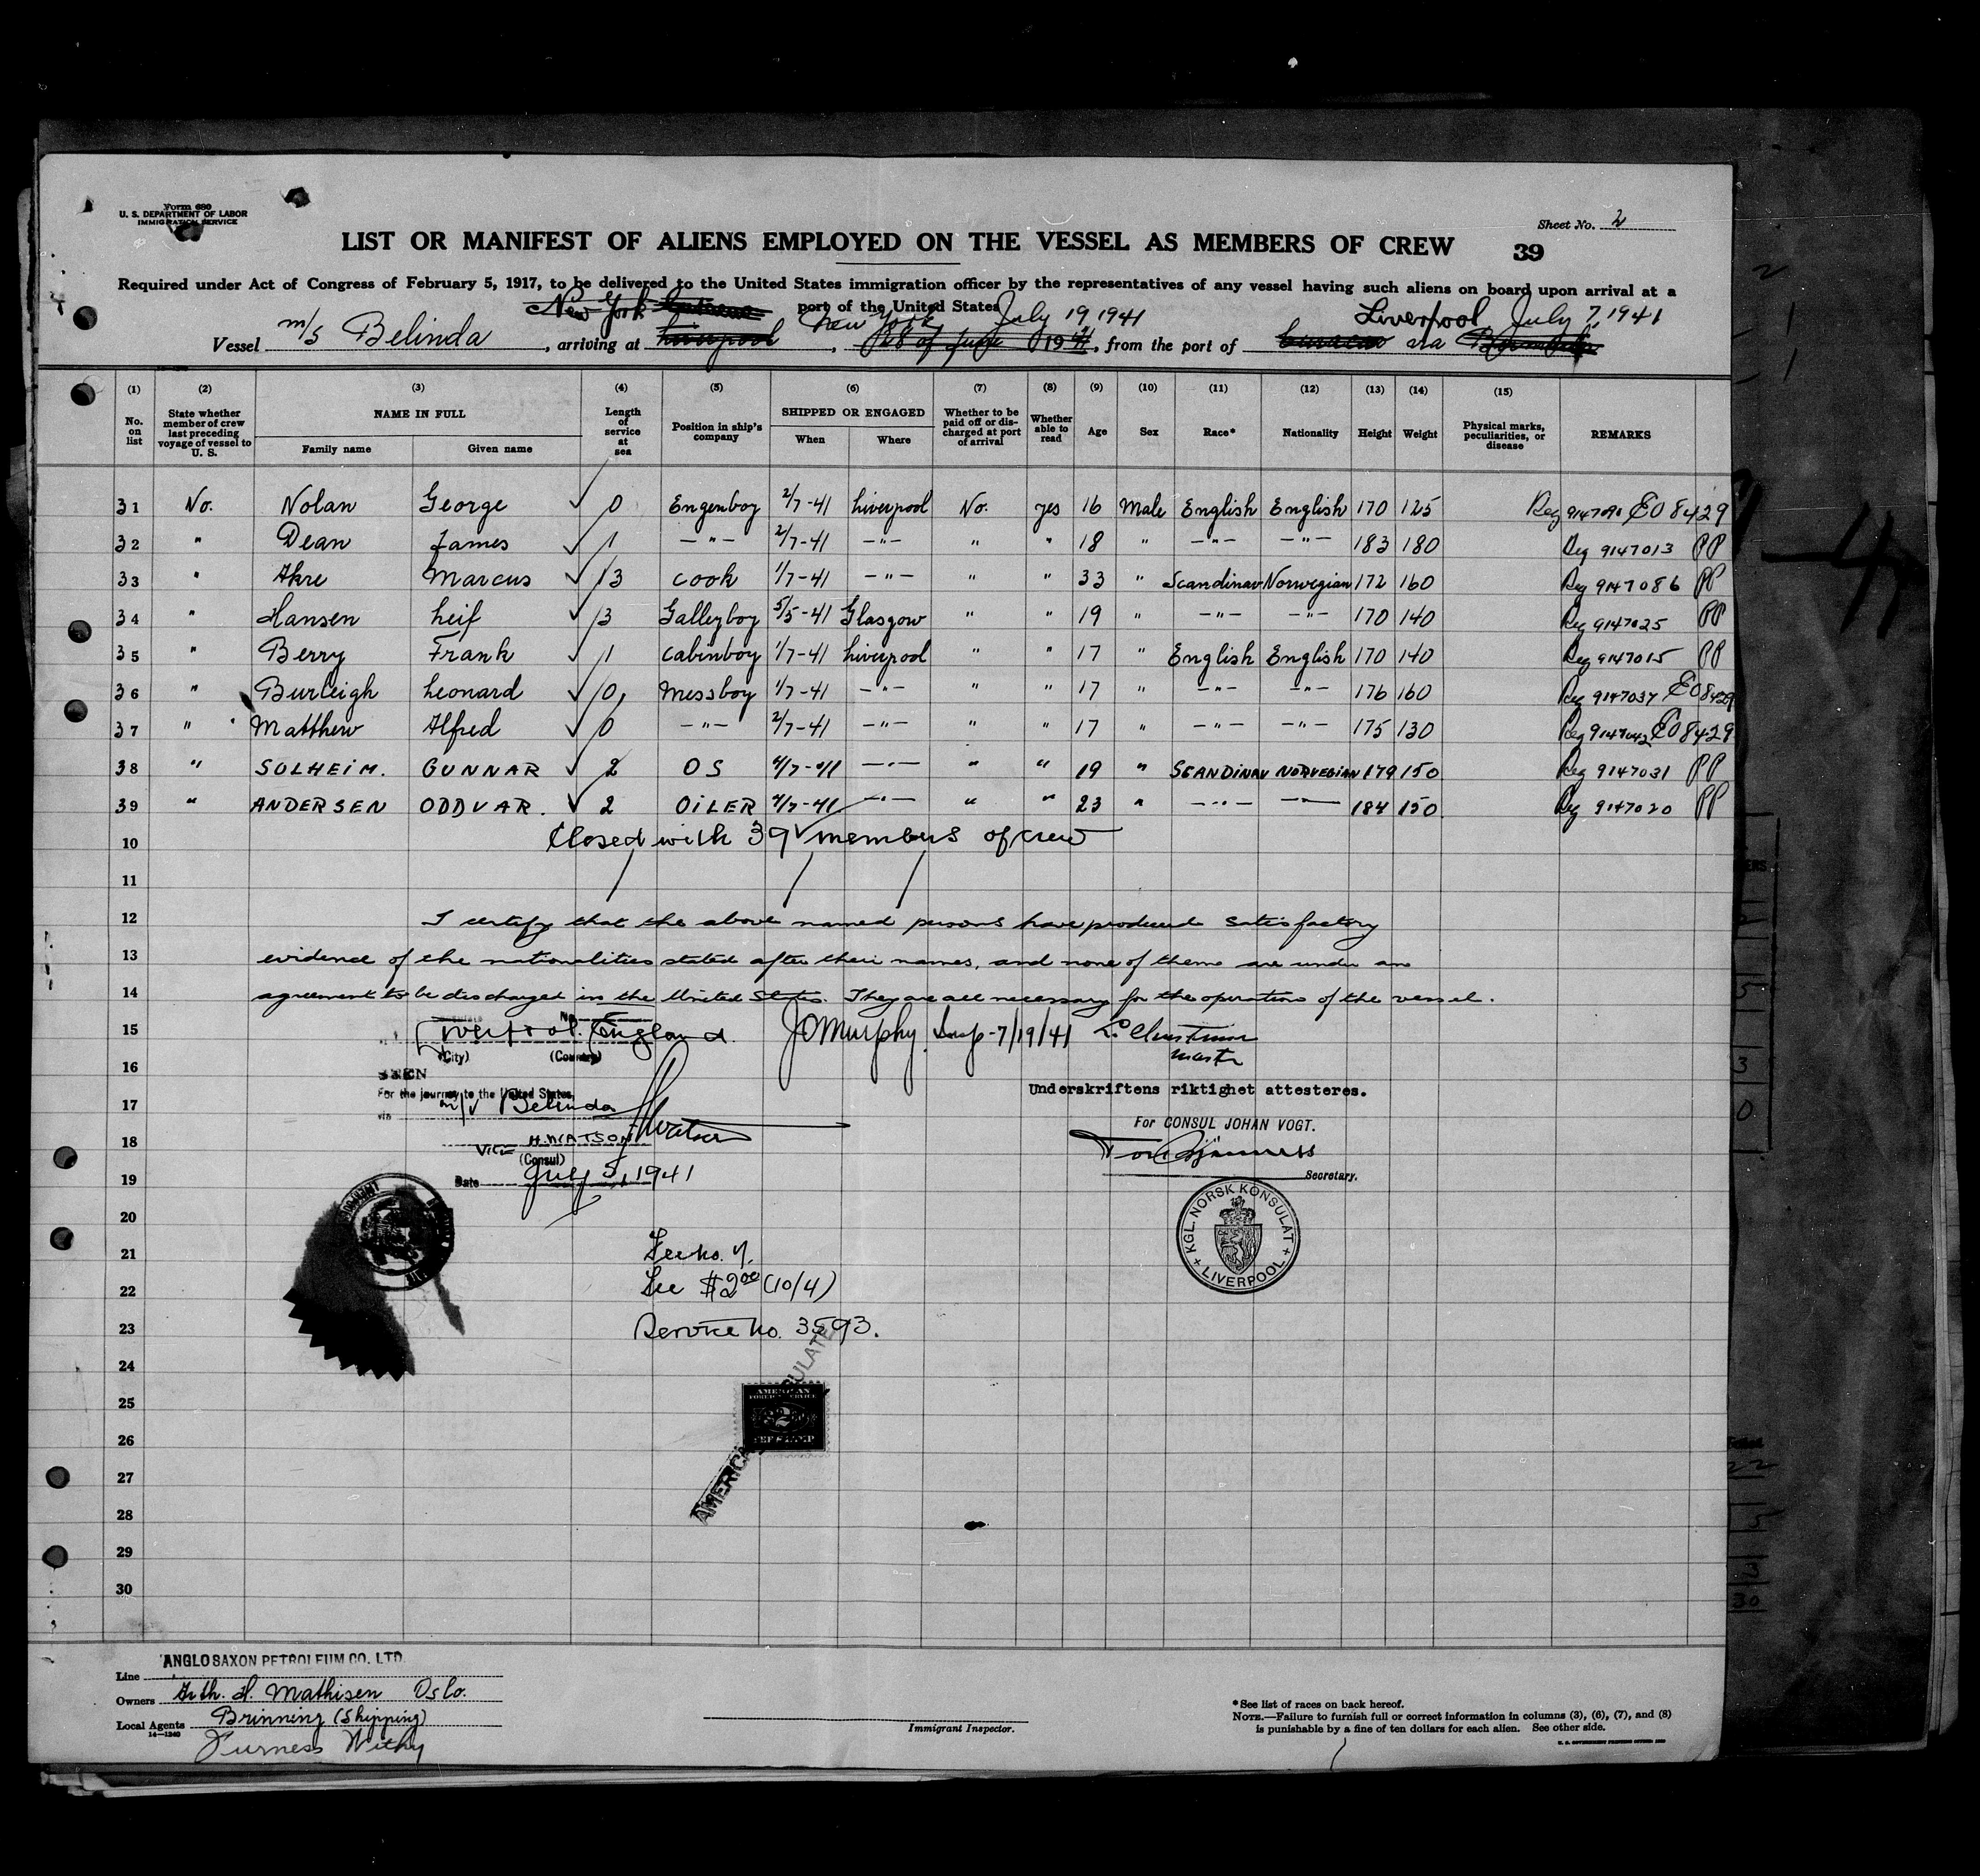 Form 680
U. S. DEPARTMENT OF LABOR
IMMIGRATION SERVICE
Sheet No. 2
LIST OR MANIFEST OF ALIENS EMPLOYED ON THE VESSEL AS MEMBERS OF CREW 39
Required under Act of Congress of February 5, 1917, to be delivered to the United States immigration officer by the representatives of any vessel having such aliens on board upon arrival at a
port of the United States
New York New York, July 19 1941 Liverpool July 7, 1941
Vessel m/s Belinda, arriving at Liverpool, 28 of June 1941, from the port of Curacao via
(1) (2) (3) (4) (5) (6) (7) (8) (9) (10) (11) (12) (13) (14) (15)
No. on list State whether member of crew last preceding voyage of vessel to U. S. NAME IN FULL Family name Given name Length of service at sea Position in ship's company SHIPPED OR ENGAGED When Where Whether to be paid off or discharged at port of arrival Whether able to read Age Sex Race* Nationality Height Weight Physical marks, peculiarities, or disease REMARKS
31 No. Nolan George 0 Engenboy 2/7-41 Liverpool No. yes 16 Male English English 170 125 Reg 9147090 E08429
32 " Dean James 1 -"- 2/7-41 -"- " " 18 " -"- -"- 183 180 Reg 9147013 PP
33 " Akre Marcus 13 cook 1/7-41 -"- " " 33 " Scandinav Norwegian 172 160 Reg 9147086 PP
34 " Hansen Leif 3 Galleyboy 5/5-41 Glasgow " " 19 " -"- -"- 170 140 Reg 9147025 PP
35 " Berry Frank 1 cabinboy 1/7-41 Liverpool " " 17 " English English 170 140 Reg 9147015 PP
36 " Burleigh Leonard 0 Messboy 1/7-41 -"- " " 17 " -"- -"- 176 160 Reg 9147037 E08429
37 " Matthew Alfred 0 -"- 2/7-41 -"- " " 17 " -"- -"- 175 130 Reg 9147042 E08429
38 " SOLHEIM. GUNNAR 2 OS 4/7-41 -"- " " 19 " SCANDINAV NORVEGIAN 179 150 Reg 9147031 PP
39 " ANDERSEN ODDVAR. 2 OILER 4/7-41 -"- " " 23 " -"- -"- 184 150 Reg 9147020 PP
10 Closed with 39 members of crew
11
12 I certify that the above named persons have produced satisfactory
13 evidence of the nationalities stated after their names, and none of them are under an
14 agreement to be discharged in the United States. They are all necessary for the operations of the vessel.
15 Liverpool. England. JO Murphy Insp-7/19/41
(City) (Country) Master
16 SEEN Underskriftens riktighet attesteres.
For the journey to the United States
17 via m/v Belinda Watson For CONSUL JOHAN VOGT.
18 H. WATSON
VICE (Consul)
19 Date July 5, 1941 Secretary.
KGL. NORSK KONSULAT LIVERPOOL
20
21
22 Fee $2.00 (10/4)
23 Service no. 3593.
24
25 AMERICAN FOREIGN SERVICE 2
26
27
28
29
30
Line ANGLO SAXON PETROLEUM CO. LTD.
Owners H. Mathisen Oslo.
Local Agents Brinning (Shipping)
14-1240
Furness Withy
Immigrant Inspector.
*See list of races on back hereof.
NOTE.—Failure to furnish full or correct information in columns (3), (6), (7), and (8)
is punishable by a fine of ten dollars for each alien. See other side.